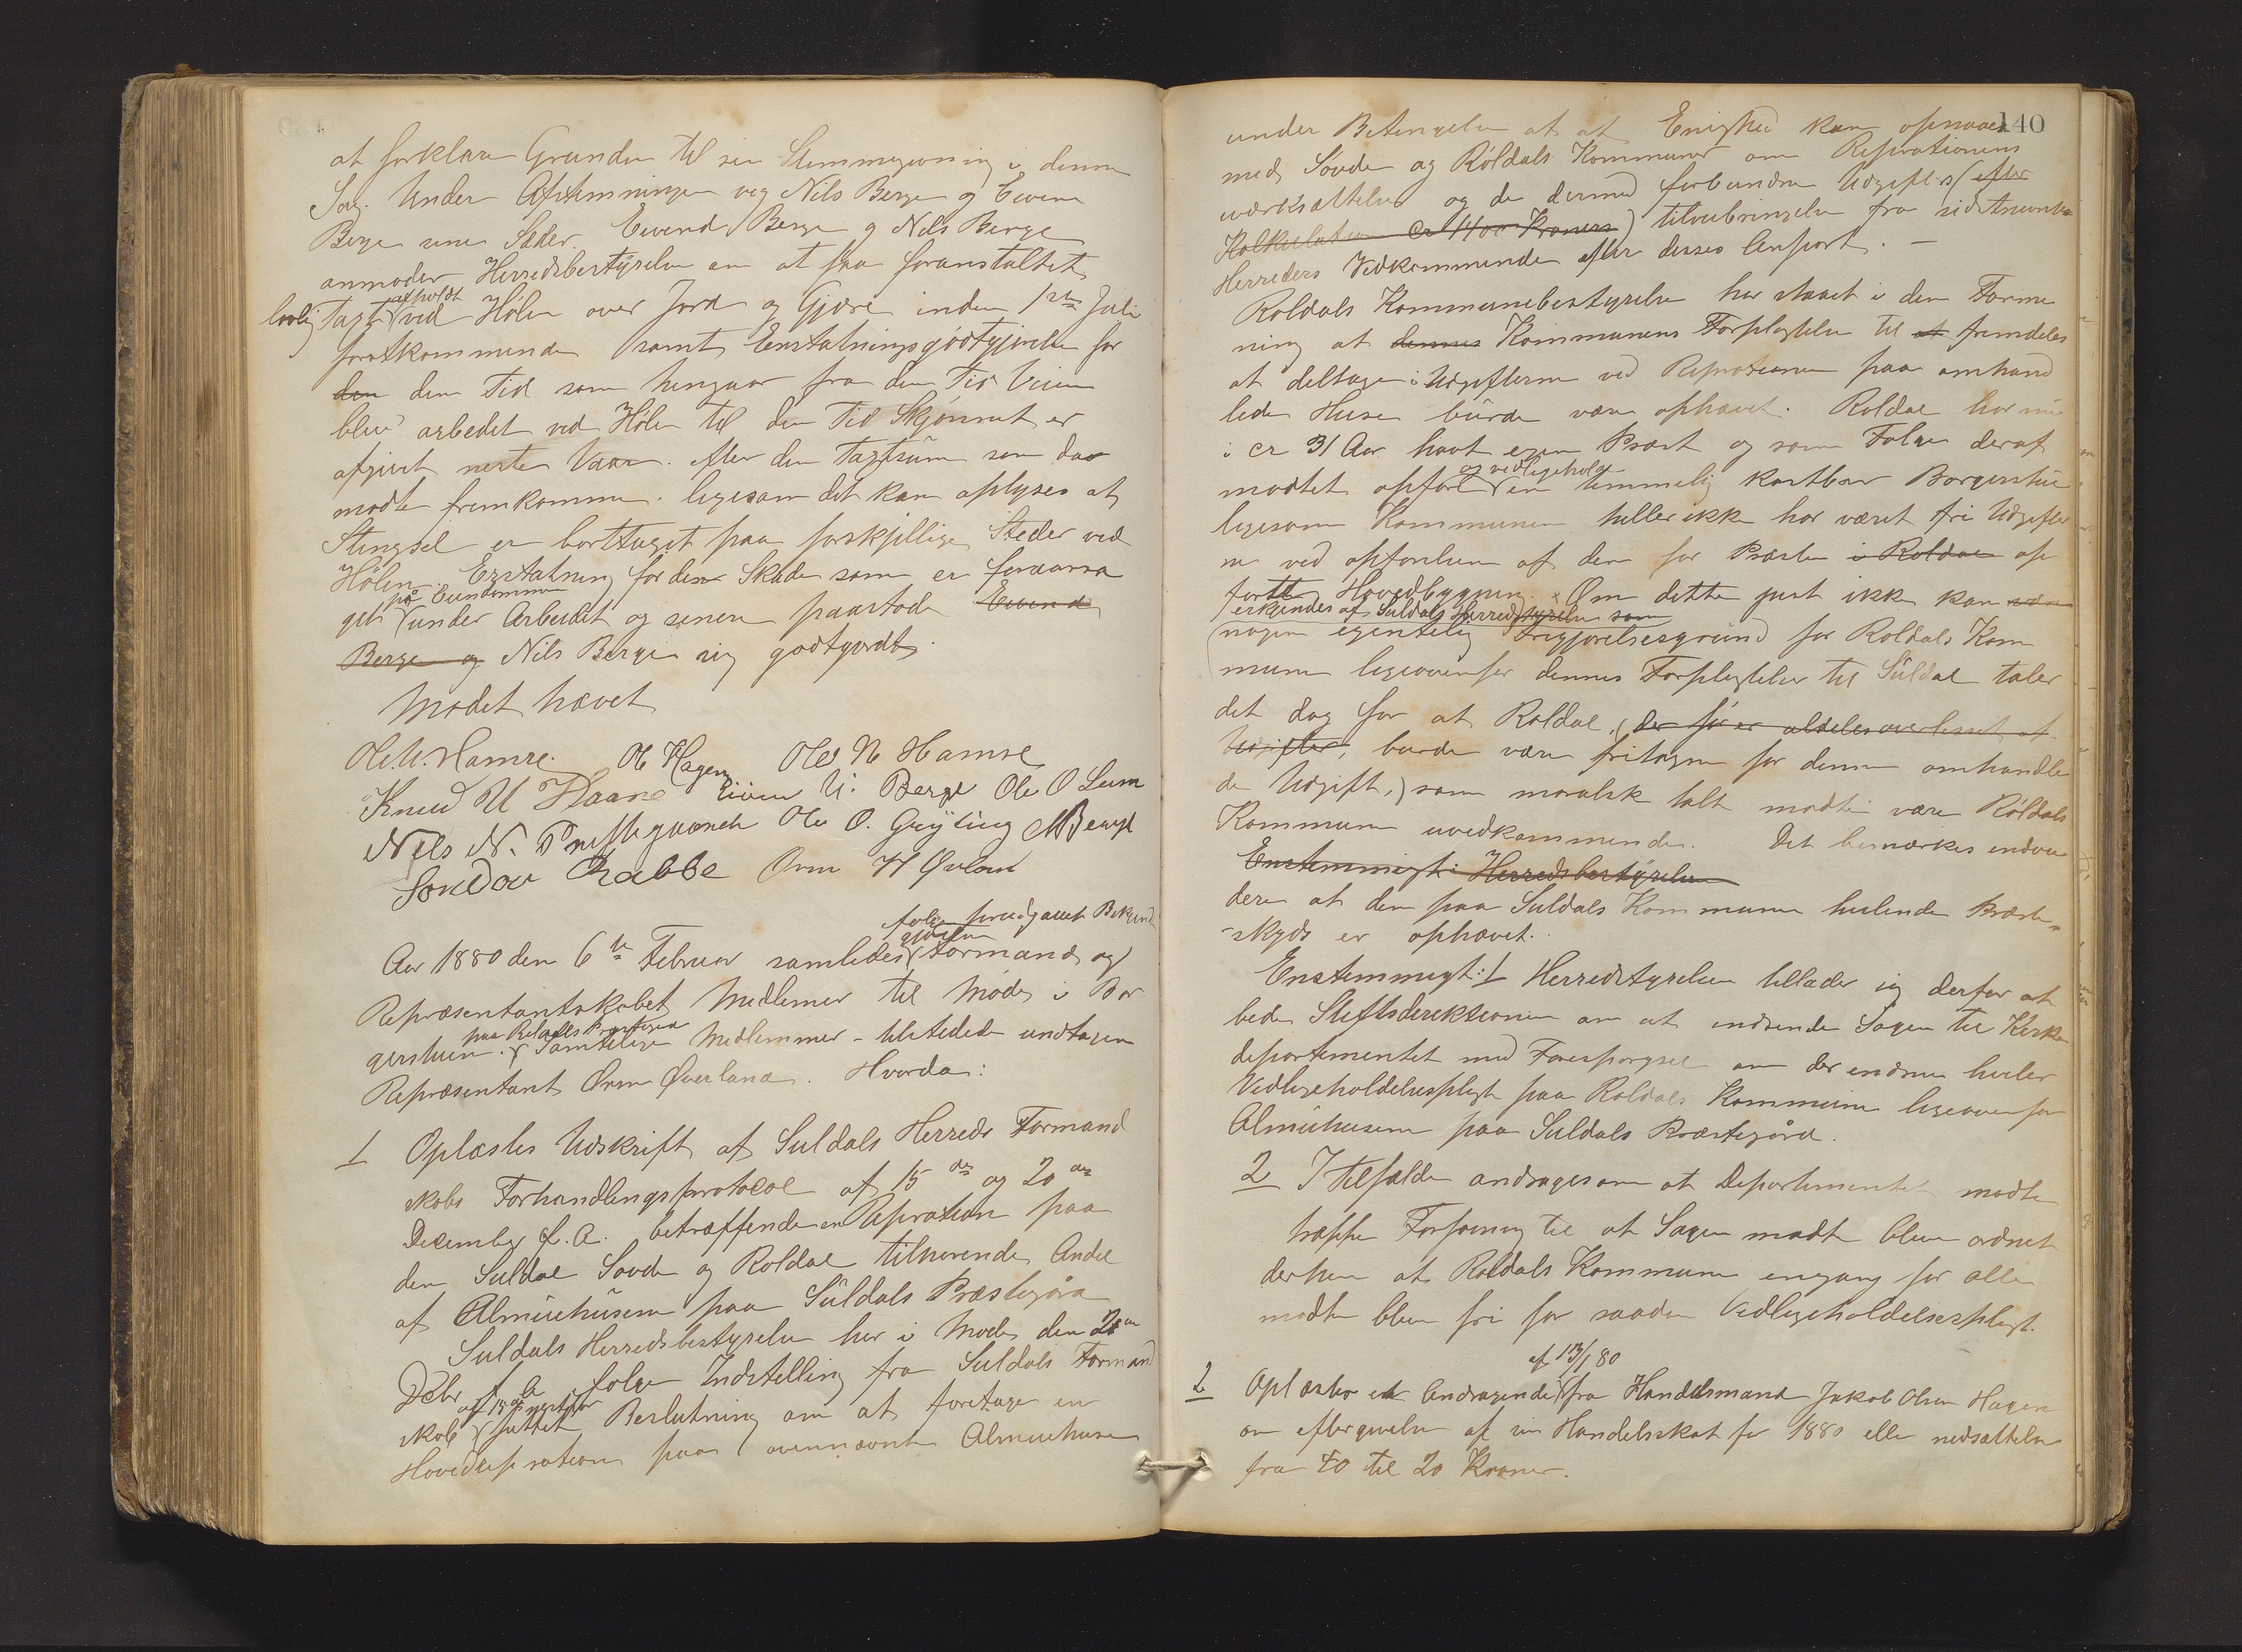 at forklare Grunden til sin Stemmegivning i denne
Sag. Under Afstemningen veg Nils Berge og Eivind
Berge sine Sæder. Eivend Berge og Nels Berge
anmoder Herredsbestyrelsen om at faa foranstaltet
afholdt
lovlig Tagt ved Hølen over Jord og Gjære inden 1ste Juli
førstkommende samt Erstatningsgodtgjørelse for
den den Tid som hengaar fra den Tid Veien
blev arbedet ved Hølen til den Tid Skjønnet er
afgivet neste Vaar. efter den Tagtsum som da
modte fremkomme. ligesom det kan oplyses at
Stengsel er borttaget paa forskjellige Steder ved
Hølen. Erstatning for den Skade som er foraarsa
på Eiendommen
get under Arbeidet og senere paastod Eivend
Berge og Nils Berge sig godtgjordt.
Mødet hævet
Ole U. Hamre. Ol Hagen Ole N Hamre
Knud U Haare Eiven U. Berge Ole O Leim
Nils N. Prestegaard Ole O. Gryting NBerge
Sondov Rabbe Orm H Øvland
følge foregaaet Bekjendt
gjørelse
Aar 1880 den 6te Februar samledes Formand og
Repræsentantskabet Medlemer til Møde i Bor
paa Roldals Prestegaard
gerstuen. Samtelige Medlemmer tilstede undtagen
Repræsentant Orm Øverland. Hvorda:
1 Oplæstes Udskrift af Suldals Herreds Formand
skabs Forhandlingsprotocol af 15de og 20de
December f. A. betræffende en Repration paa
den Suldal Sovde og Roldal tilhørende Andel
af Almuehusene paa Suldals Præstegård
Suldals Herredsbestyrelse har i Møde den 20de
Debr f A ifølge Indstelling fra Suldals Formand
af 15de næstfør
skab fattet Beslutning om at foretage en
Hovedrepration paa ovennævnte Almuehuse
140
under Betingelse af at Enighed kan opnaaes
med Sovde og Røldals Kommuner om Reprationens
iværksættelse og de dermed forbundne Udgifters (efter
Kalkulation ca 1400 Kroners) tilveiebringelse fra sidstnævnte
Herreders Vedkommende efter derses Anpart. —
Roldals Kommunebestyrelse har staaet i den Forme
ning at dennes Kommunens Forplegtelse til at fremdeles
at deltage i Udgifterne ved Reprationen paa omhand
lede Huse burde være ophævet. Roldal har nu
i ca 31 Aar havt egen Præst og som Følge deraf
og vedligeholde
maattet opført en temmelig kostbar Borgerstue
ligesom Kommunen heller ikke har været fri Udgifter
ne ved opførelsen af den for Præsten i Roldal op
førte Hovedbygning. x Om dette just ikke kan være
erkjendes af Suldals Herredstyrelse som
nogen egentelig Frigjørelsesgrund for Roldals Kom
mune ligeoverfor dennes Forplegtelser til Suldal taler
det dog for at Roldal, (der før er aldeles overlesset af
Udgifter, burde være fritagen for denne omhandle
de Udgift,) som moralsk talt modte være Røldals
Kommune uvedkommende. Det bemærkes endvi
Enstemmigt: Herredsbestyrelsen
dere at den paa Suldals Kommune hvilende Præste
skyds er ophævet.
Enstemmigt: 1 Herredstyrelsen tillader sig derfor at
bede Steftsdirektionen om at indsende Sagen til Kirke
departementet med Forespørgsel om der endnu hviler
Vedligeholdelsesplegt paa Roldals Kommune ligeoverfor
Almuehusene paa Suldals Præstegård.
2 I tilfælde andrages om at Departementet modte
træffe Forføining til at Sagen modte blive ordnet
derhen at Roldals Kommune engang for alle
modte blive fri for saadan Vedligeholdelsesplegt.
af 13/1 80
2 Oplæstes et Andragende fra Handelsmand Jakob Olsen Hagen
om eftergivelse af sin Handelsskat for 1880 eller nedsættelse
fra 40 til 20 Kroner.